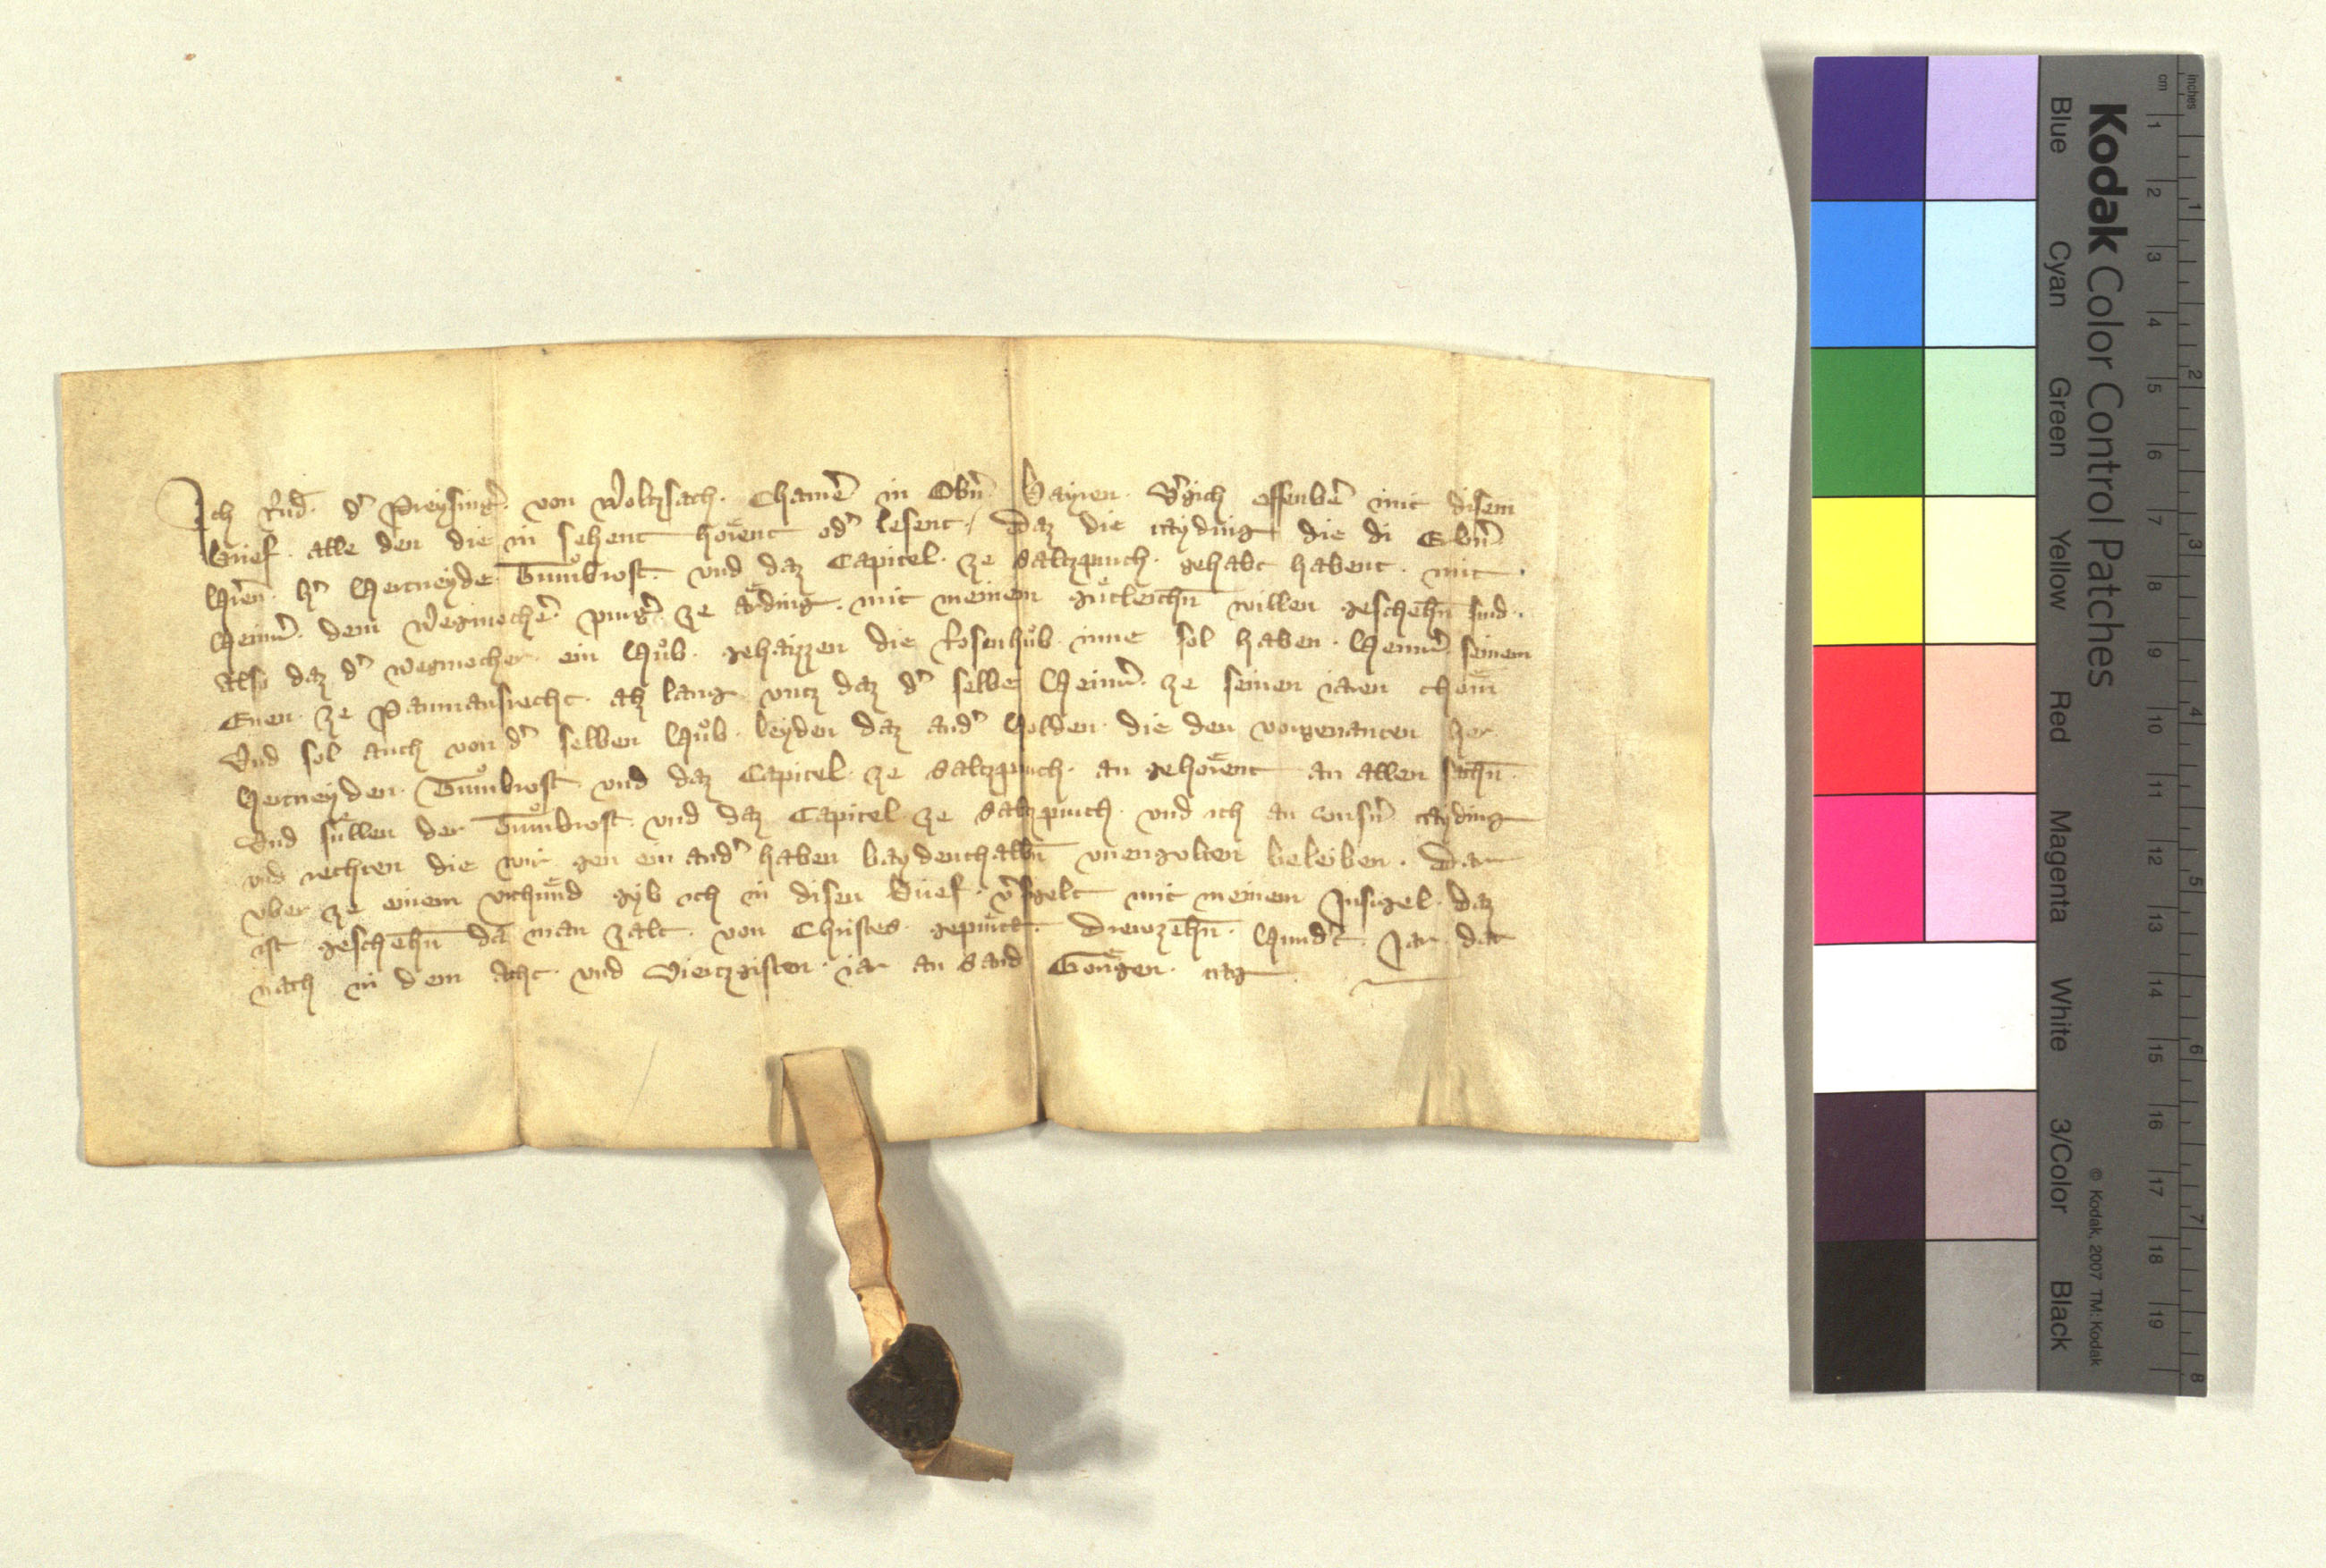 Ich Rud̄. d᷑ Preysing᷑. von Woltzsach. Chamr̄ in Obn̄ Bayren. v᷑gich offenbr̄ mit disem
brief. alle den die in sehent hoͤrent od᷑ lesent / Daz die tayding die di Erbn̄
Hr̄en. h᷑ Hertneyde Tuͦmbrost. vnd daz Capitel. ze Saltzpurch. gehabt habent. mit.
Heinr̄. dem Wegmachr̄. purg᷑ ze aͤrding. mit meinem guͤtleichn̄ willen geschehn̄ sind.
Also daz d᷑ wegmacher ein Huͦb. gehaizzen die Rosenhuͦb. inne sol haben. Heinr̄. seinem
Enen. ze Paumansrecht. alz lang vntz daz d᷑ selbe Heinr̄. ze seinen iaren choͤm
Vnd sol auch von d᷑ selben Huͦb. leyden daz and᷑ Holden. die den vorgenanten her
Hertneyden. Tuͦmbrost vnd daz Capitel. ze Saltzpurch. an gehoͤrent an allen sachn̄.
Vnd suͤllen der Tuͦmbrost. vnd daz Capitel ze Saltzpurch. vnd ich an vnsn̄ tayding
vnd rechten die wir gen ein and᷑ haben baydenthalbn̄ vnengolten beleiben. Dar
vber ze einem vrchuͤnd gyb ich in disen brief. v᷑sigelt mit meinem Insigel. daz
ist geschehn̄ da man zalt. von Christes. gepuͤrtt. Drewzehn̄. Hund᷑t. Jar. dar
nach in dem Acht. vnd Viertzgisten. iar an Sand Goͤrigen. tag
Kodak Color Control Patches
Blue
Cyan
Green
Yellow
Red
Magenta
White
3/Color
Black
© Kodak, 2007 TM: Kodak
cm 1 2 3 4 5 6 7 8 9 10 11 12 13 14 15 16 17 18 19
inches 1 2 3 4 5 6 7 8